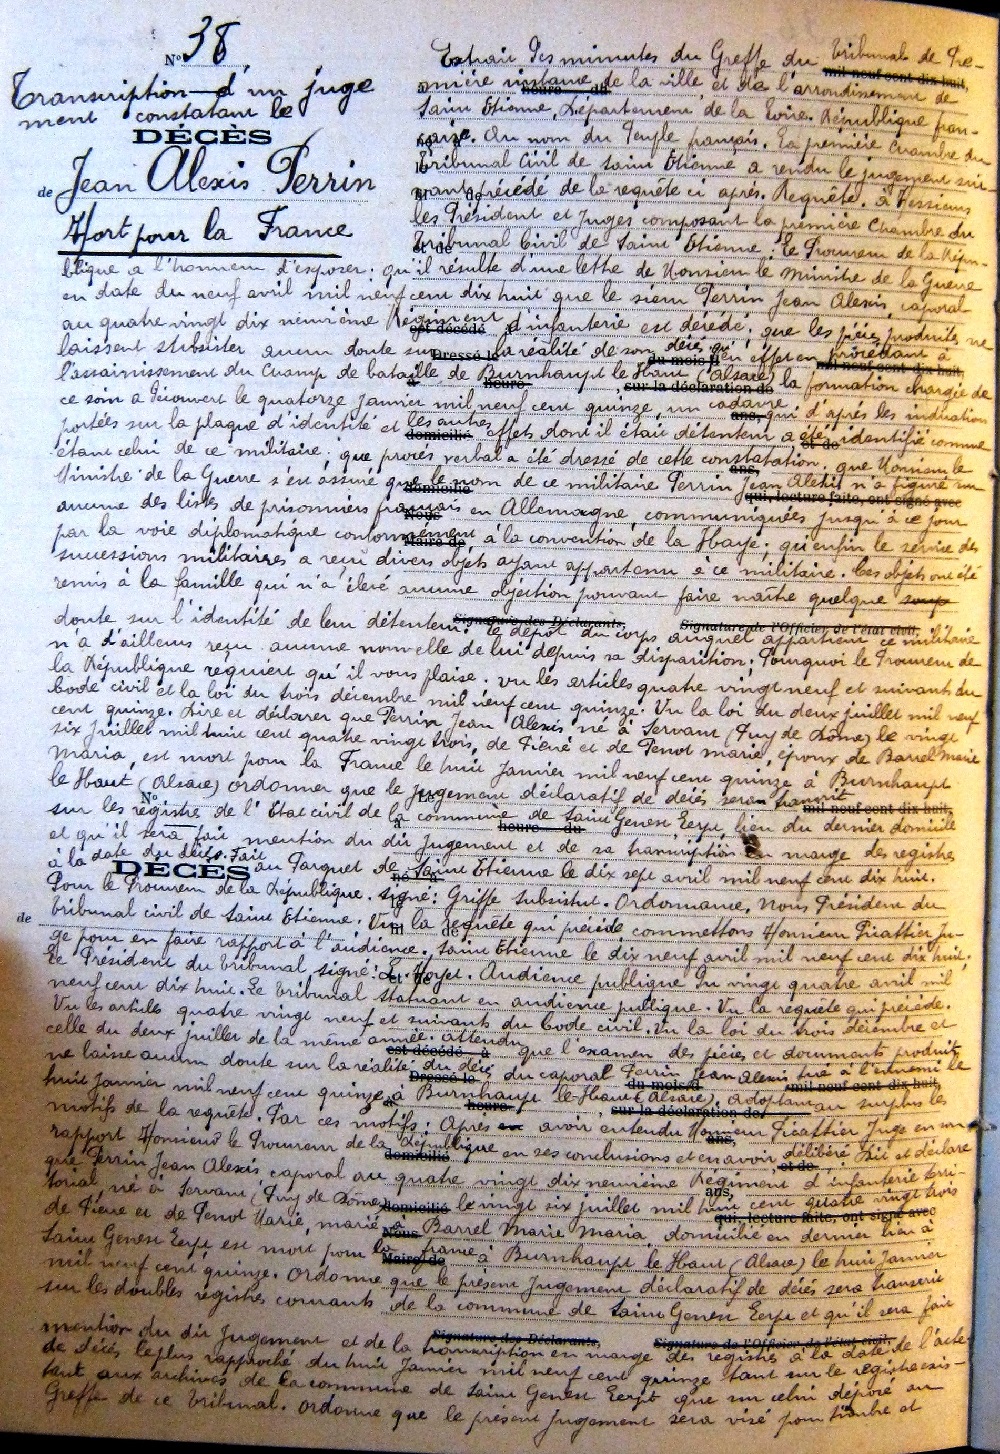 N° 38
Transcription d'un juge
ment constatant le
DÉCÈS
de Jean Alexis Perrin
Mort pour la France
Extrait des minutes du Greffe du Tribunal de Pre-
mière instance de la ville et de l'arrondissement de
Saint Etienne, Département de la Loire. République fran-
çaise. Au nom du Peuple français. La première Chambre du
Tribunal Civil de Saint Etienne a rendu le jugement sui-
vant précédé de la requête ci après. Requête. à Messieurs
les Président et Juges composant la première Chambre du
Tribunal Civil de Saint Etienne. Le Procureur de la Répu-
blique a l'honneur d'exposer: qu'il résulte d'une lettre de Monsieur le Ministre de la Guerre
en date du neuf avril mil neuf cent dix huit que le sieur Perrin Jean Alexis, caporal
au quatre vingt dix neuvième Régiment d'infanterie est décédé; que les pièces produites ne
laissent subsister aucun doute sur la réalité de son décès qu'en effet en procédant à
l'assainissement du Champ de bataille de Burnhaupt le Haut (Alsace) la formation chargée de
ce soin a découvert le quatorze janvier mil neuf cent quinze, un cadavre qui d'après les indications
portées sur la plaque d'identité et les autres effets dont il était détenteur a été identifié comme
étant celui de ce militaire; que procès verbal a été dressé de cette constatation. que Monsieur le
Ministre de la Guerre s'est assuré que le nom de ce militaire Perrin Jean Alexis n'a figuré sur
aucune des listes de prisonniers français en Allemagne communiquées jusqu'à ce jour
par la voie diplomatique conformément à la convention de la Haye; qu'enfin le service des
successions militaires a reçu divers objets ayant appartenu à ce militaire. Ces objets ont été
remis à la famille qui n'a élevé aucune objection pouvant faire naître quelque
doute sur l'identité de leur détenteur. Le dépôt du corps auquel appartient ce militaire
n'a d'ailleurs reçu aucune nouvelle de lui depuis sa disparition; Pourquoi le Procureur de
la République requiert qu'il vous plaise. vu les articles quatre vingt neuf et suivants du
Code civil et la loi du trois décembre mil neuf cent quinze. Vu la loi du deux juillet mil neuf
cent quinze. Dire et déclarer que Perrin Jean Alexis né à Servant (Puy de Dôme) le vingt
six juillet mil huit cent quatre vingt trois, de Pierre et de Penot marie, époux de Barrel Marie
Maria, est mort pour la France le huit Janvier mil neuf cent quinze à Burnhaupt
le Haut (Alsace) ordonner que le jugement déclaratif de décès sera transcrit
sur les registres de l'Etat civil de la commune de Saint Genest Lerpt, lieu du dernier domicile
et qu'il sera fait mention du dit Jugement et de sa transcription en marge des registres
à la date du décès. Fait au Parquet de Saint Etienne le dix sept avril mil neuf cent dix huit.
DÉCÈS
Pour le Procureur de la République. signé: Griffe Substitut. Ordonnance. Nous Président du
de
tribunal civil de Saint Etienne. Vu la requête qui précède commettons Monsieur Picattier Ju-
ge pour en faire rapport à l'audience. Saint Etienne le dix neuf avril mil neuf cent dix huit,
Le Président du tribunal signé: Audience publique du vingt quatre avril mil
neuf cent dix huit. Le tribunal statuant en audience publique. Vu la requête qui précède.
Vu les articles quatre vingt neuf et suivants du Code civil. Vu la loi du trois décembre et
celle du deux juillet de la même année. attendu que l'examen des pièces et documents produits
ne laisse aucun doute sur la réalité du décès du caporal Perrin Jean Alexis tué à l'ennemi le
huit Janvier mil neuf cent quinze à Burnhaupt le Haut (Alsace). Adoptant au surplus les
motifs de la requête. Par ces motifs. Après avoir entendu Monsieur Picattier Juge en son
rapport Monsieur le Procureur de la République en ses conclusions et en avoir délibéré Dit et déclare
que Perrin Jean Alexis, caporal au quatre vingt dix neuvième Régiment d'infanterie terri-
torial, né à Servant (Puy de Dôme) le vingt six juillet mil huit cent quatre vingt trois
de Pierre et de Penot Marie, marié à Barrel Marie Maria, domicilié en dernier lieu à
Saint Genest Lerpt est mort pour la france à Burnhaupt le Haut (Alsace) le huit Janvier
mil neuf cent quinze. Ordonne que le présent Jugement déclaratif de décès sera transcrit
sur les doubles registres courants de la commune de Saint Genest Lerpt et qu'il sera fait
mention du dit Jugement et de la transcription en marge des registres à la date de l'acte
de décès le plus rapproché du huit Janvier mil neuf cent quinze tant sur le registre exis-
tant aux archives de la commune de Saint Genest Lerpt que sur celui déposé au
Greffe de ce tribunal. Ordonne que le présent Jugement sera visé pour timbre et